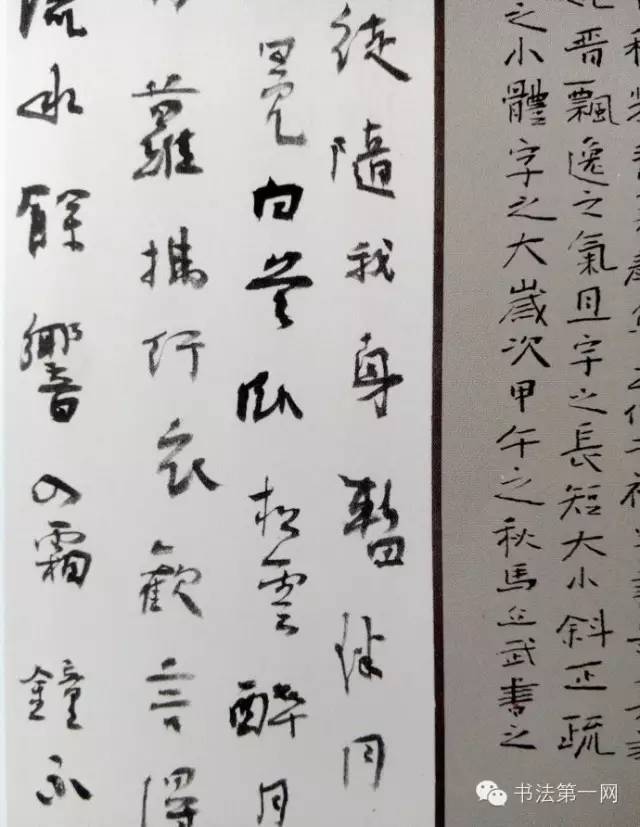 晋飄逸之氣且字之長短大小斜正疏
之小體字之大歲次甲午之秋馬丘武書之
徒隨我身暫伴月
冕白首卧松雲醉月
蘿拂行衣歡言得
流水餘響入霜鐘不
书法第一网